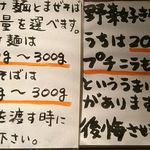 け麺とまぜそば
量を選べます。
け麺は
g〜300g
そばは
g〜300g
を渡す時に
下さい。
野菜好きな
うちは20
プチこうも
というちまい
があります
後悔させ